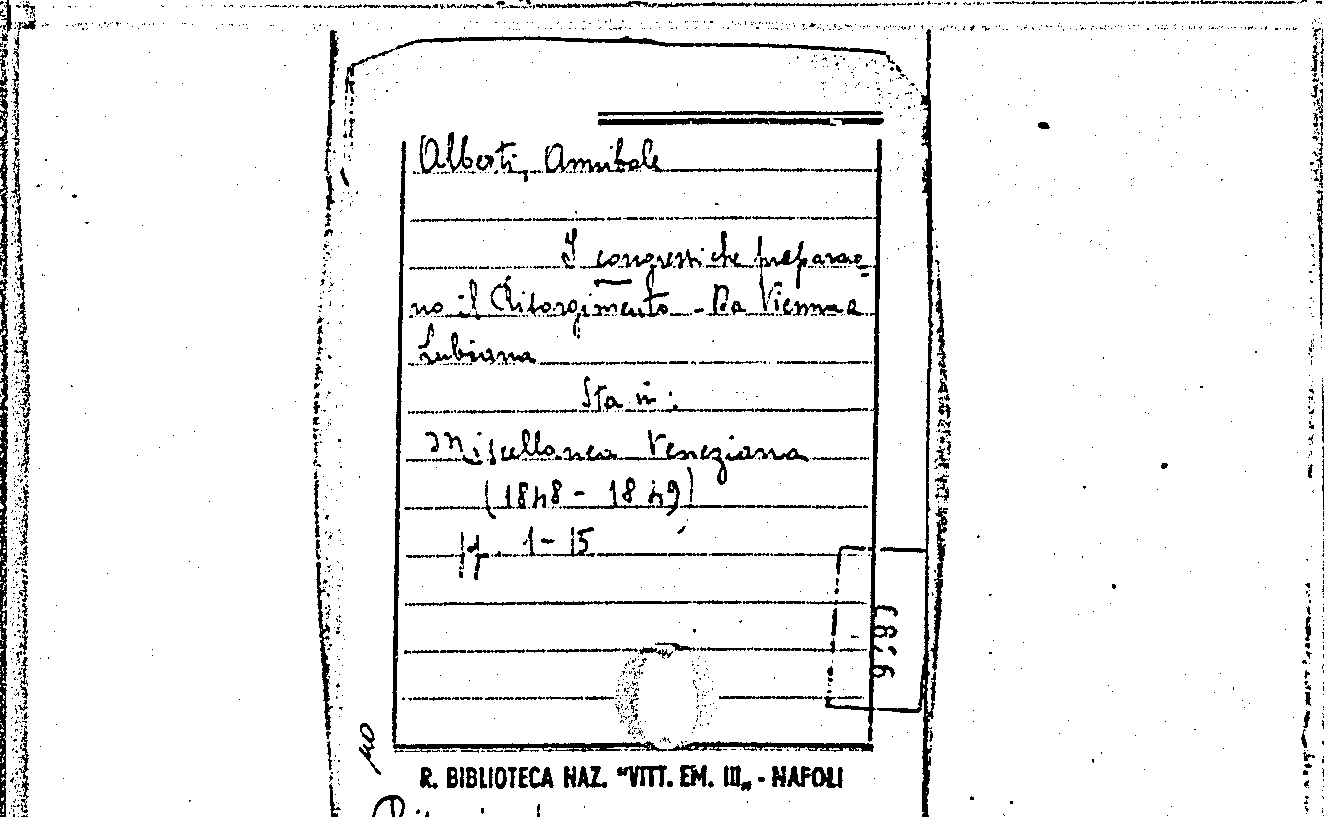 Alberti, Annibale
I congressi che prepararo=
no il Risorgimento - Da Vienna a
Lubiana
Sta in:
Miscellanea Veneziana
(1848 - 1849)
pp. 1 - 15
R. BIBLIOTECA NAZ. "VITT. EM. III„ - NAPOLI